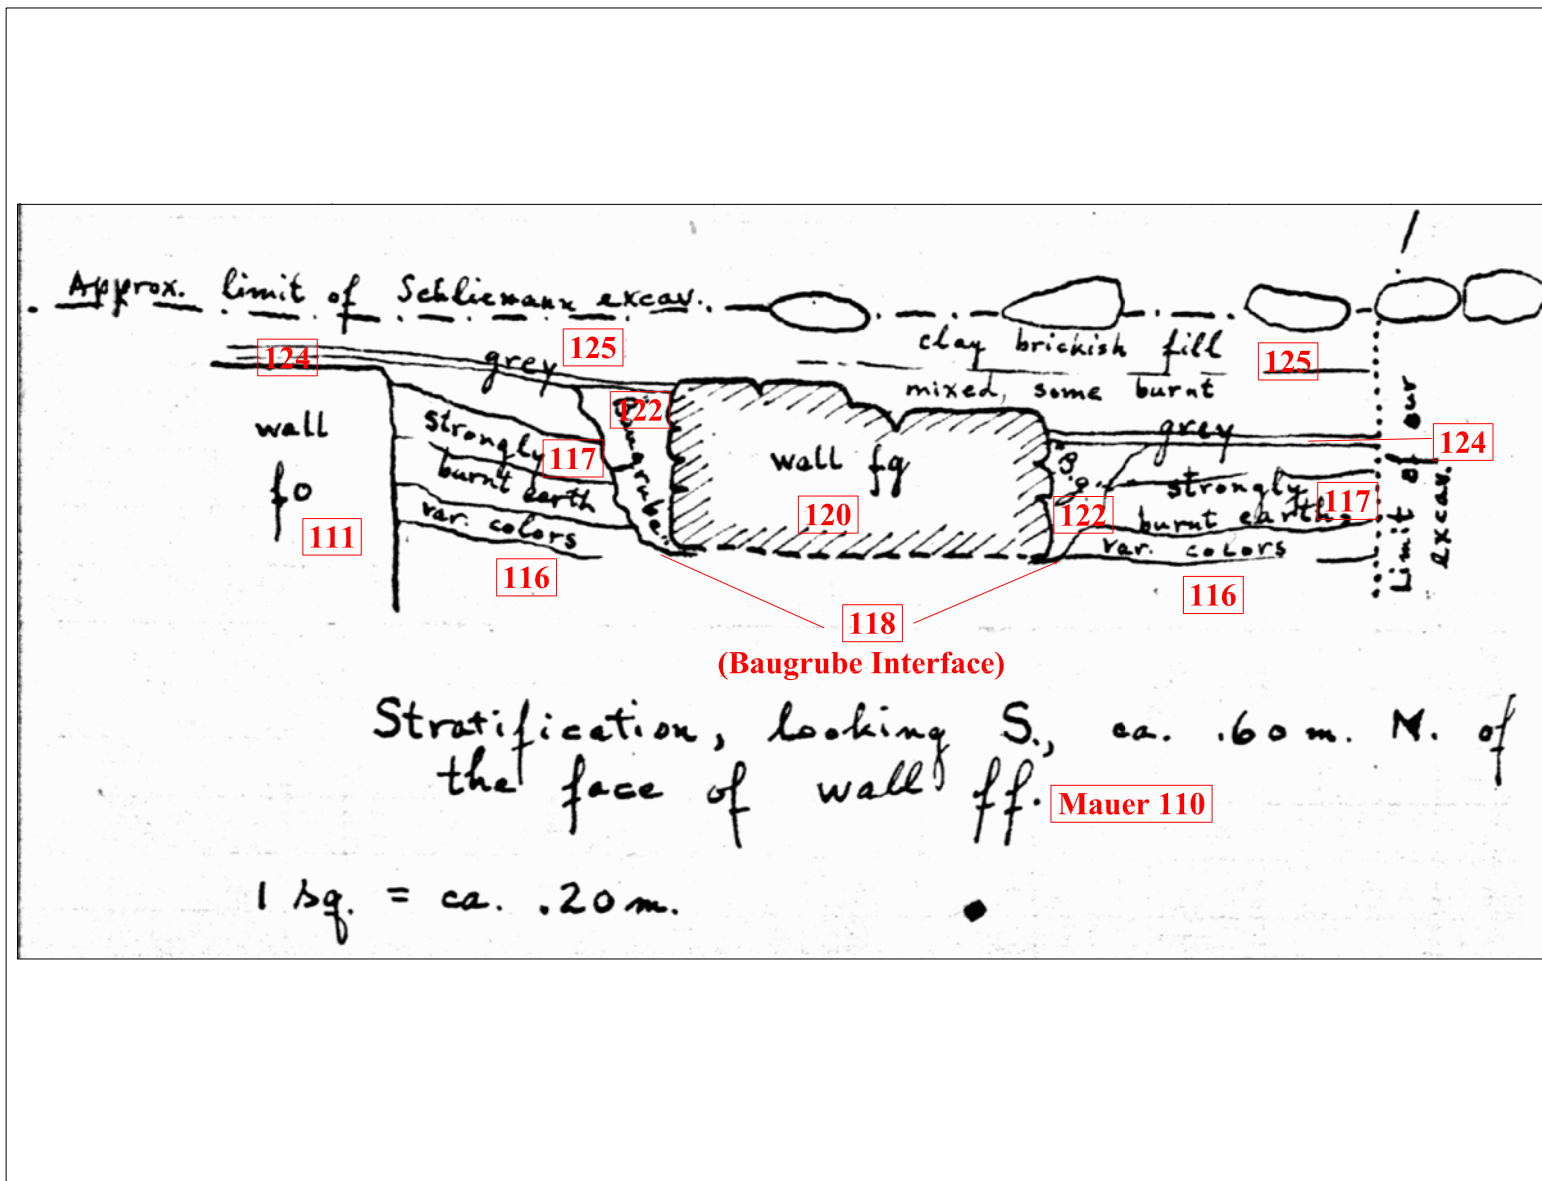 Approx. limit of Schliemann excav.
125
clay brickish fill
125
124
grey
mixed, some burnt
122
wall
fo
111
strongly
117
burnt earth
var. colors
116
Baugrube
wall fg
120
grey
124
B.
g.
122
strongly
117
burnt earth
var. colors
116
Limit of our
excav.
118
(Baugrube Interface)
Stratification, looking S., ca. .60 m. N. of
the face of wall ff.
Mauer 110
1 sq. = ca. .20 m.